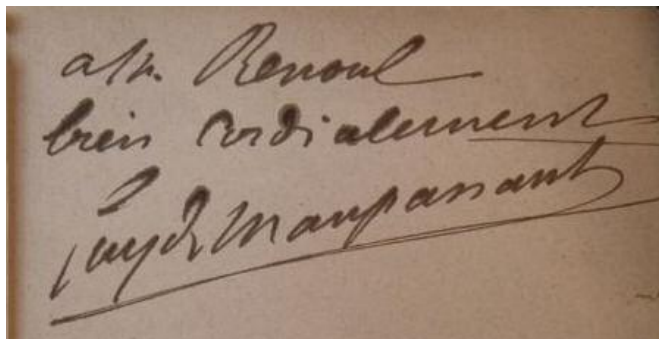 a M. Renoul
bien cordialement
Guy de Maupassant